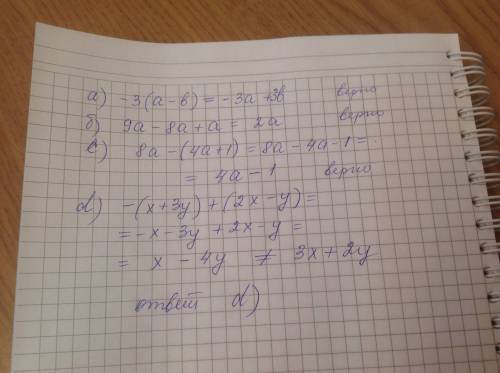 а) -3(а-в) = -3а +3в верно
б) 9а - 8а + а = 2а верно
с) 8а - (4а+1) = 8а - 4а - 1 =
= 4а - 1 верно
d) -(x+3y) + (2x-y) =
= -x - 3y + 2x - y =
= x - 4y ≠ 3x + 2y
ответ d)